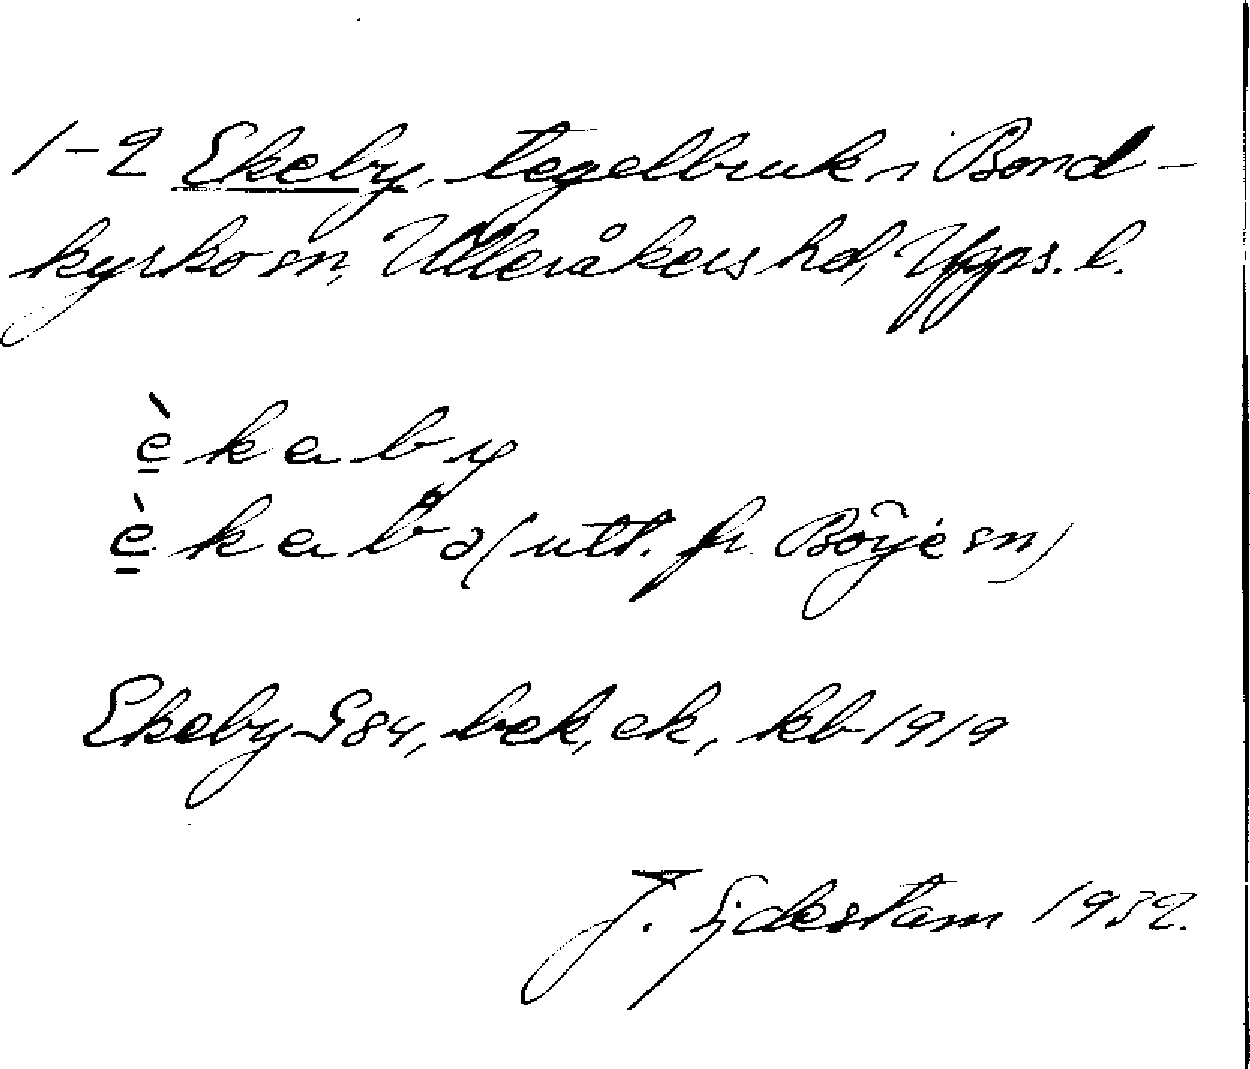 1-2 Ekeby, tegelbruk i Bond-
kyrko sn, Ulleråkers hd, Upps. l.
è̱ k a b y
è̱ k a b ə (utt. fr. Börje sn)
Ekeby G84, bek, ek, kb 1919
J. Ejdestam 1932.